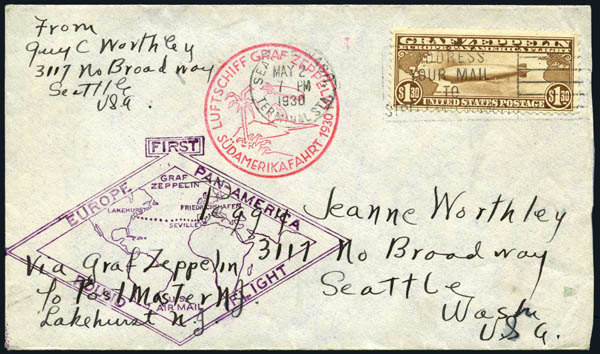 From
Guy C Worthley
3117 No Broadway
Seattle
USA.
LUFTSCHIFF GRAF ZEPPELIN
SÜDAMERIKAFAHRT 1930
SEATTLE
MAY 2
7 PM
1930
TERMINAL STA.
GRAF ZEPPELIN
EUROPE-PAN-AMERICA FLIGHT
$1.30 $1.30
UNITED STATES POSTAGE
ADDRESS
YOUR MAIL
TO
FIRST
EUROPE PAN-AMERICA
ROUND FLIGHT
GRAF
ZEPPELIN
LAKEHURST
FRIEDRICHSHAFEN
SEVILLE
AIR MAIL
Jeanne Worthley
3117 No Broadway
Seattle
Wash
U.S.A.
Via Graf Zeppelin
To Post Master NJ
Lakehurst N.J.